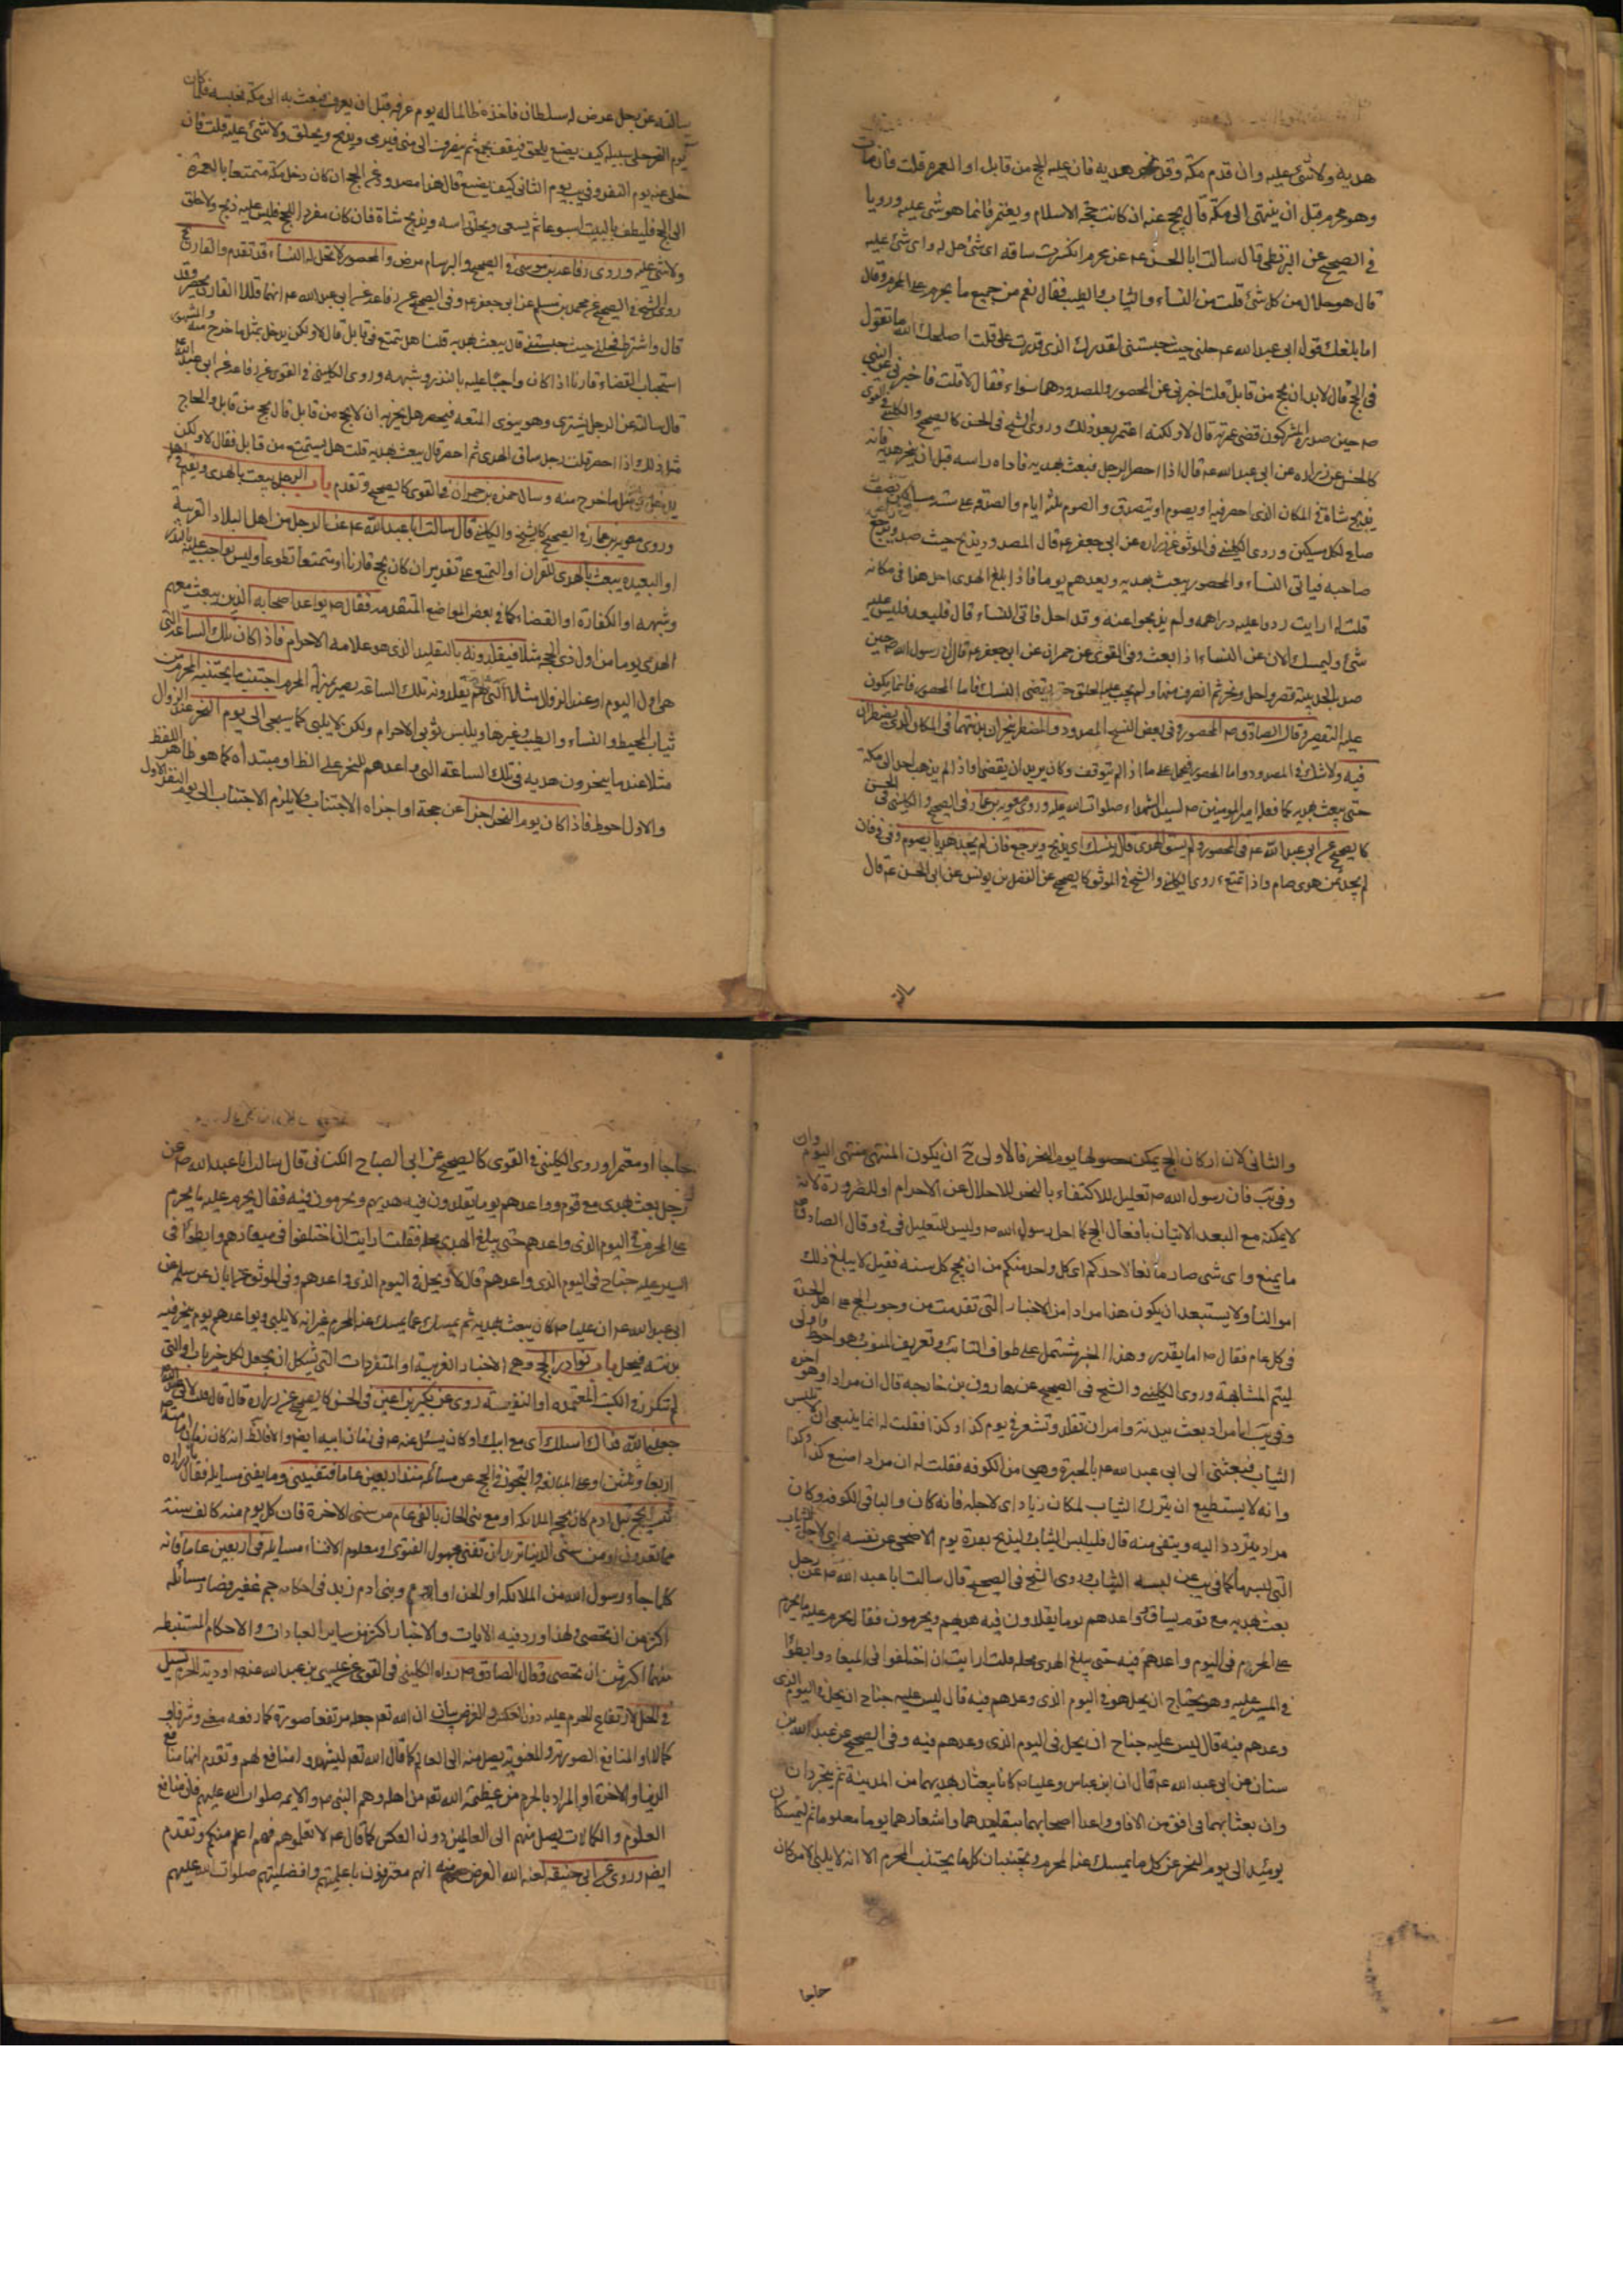 هديه ولا شئ عليه وان قدم مكة وقد نحر هديه فان عليه الحج من قابل او العمرة قلت فان مات
وهو محرم قبل ان ينتهى الى مكة قال يحج عنه ان كانت حجة الاسلام ويعتمر فانما هو شئ عليه ورويا
فى الصحيح عن البزنطى قال سالت ابا الحسن عه عن محرم انكسرت ساقه اى شئ حل له واى شئ عليه
قال هو حلال من كل شئ قلت من النساء والثياب والطيب فقال نعم من جميع ما يحرم على المحرم وقال
اما بلغك قول ابى عبد الله عه حلنى حيث حبستنى لقدرك الذى قدرت على قلت اصلحك الله ما تقول
فى الحج قال لا بد ان يحج من قابل قلت اخبرنى عن المحصور والمصدود هما سواء فقال لا قلت فاخبرنى عن النبى
صه حين صده المشركون قضى عمرته قال لا ولكنه اعتمر بعد ذلك وروى الشيخ فى الحسن كالصحيح والكلينى فى القوى
كالحسن عن زراره عن ابى عبد الله عه قال اذا احصر الرجل فبعث بهديه فاذاه راسه قبل ان ينحر هديه فانه
يذبح شاة فى المكان الذى احصر فيه او يصوم او يتصدق والصوم ثلثه ايام والصدقه على سته مساكين نصف
صاع لكل مسكين وروى الكلينى فى الموثق عن زراره عن ابى جعفر عه قال المصدود يذبح حيث صد ويرجع
صاحبه فياتى النساء والمحصور يبعث بهديه ويعدهم يوما فاذا بلغ الهدى احل هذا فى مكانه
قلت له ارايت ردوا عليه دراهمه ولم يذبحوا عنه وقد احل فاتى النساء قال فليعد فليس عليه
شئ وليمسك الان عن النساء اذا بعث وفى القوى عن حمران عن ابى جعفر عه قال ان رسول الله صه حين
صد بالحديبية قصر واحل ونحر ثم انصرف منها ولم يجب عليه الحلق حتى يقضى النسك فاما المحصور فانما يكون
عليه التقصير وقال الصادق صه المحصور وفى بعض النسخ المصدود والمضطر ينحران بدنتهما فى المكان الذى يضطران
فيه ولا شك فى المصدود واما المحصور فيحمل على ما اذا لم يتوقف وكان يريد ان يقضى او اذا لم يذهب احد الى مكة
حتى يبعث بهديه كما فعل امير المومنين صه لسيد الشهداء صلوات الله عليه وروى معويه بن عمار فى الصحيح والكلينى فى الحسن
كالصحيح عن ابى عبد الله عه فى المحصور ولم يسق الهدى قال ينسك اى يذبح ويرجع فان لم يجد هديا يصوم وفى فى فان
لم يجد ثمن هدى صام واذا تمتع روى الكلينى والشيخ فى الموثق كالصحيح عن الفضل بن يونس عن ابى الحسن عه قال
سالته
سالته عن رجل عرض له سلطان فاخذه ظالما له يوم عرفه قبل ان يعرف فبعث به الى مكة فحبسه فلما كان
يوم النحر خلى سبيله كيف يصنع يلحق فيقف بجمع ثم ينصرف الى منى فيرمى ويذبح ويحلق ولا شئ عليه قلت فان
خلى عنه يوم النفر الثانى كيف يصنع قال هذا مصدود عن الحج ان كان دخل مكة متمتعا بالعمرة
الى الحج فليطف بالبيت اسبوعا ثم يسعى ويحلق راسه ويذبح شاة فان كان مفردا للحج فليس عليه ذبح ولا حلق
ولا شئ عليه وروى رفاعه بن موسى فى الصحيح والبرسام مرض والمحصور لا تحل له النساء قد تقدم والقارن
روى الشيخ فى الصحيح عن محمد بن مسلم عن ابى جعفر عه وفى الصحيح عن رفاعه عن ابى عبد الله عه انهما قالا القارن يحصر وقد
قال واشترط فحلنى حيث حبستنى قال يبعث بهديه قلنا هل يتمتع فى قابل قال لا ولكن يدخل بمثل ما خرج منه والمشهور
استحباب القضاء قارنا اذا كان واجبا عليه بالنذر وشبهه وروى الكلينى فى القوى عن رفاعه عن ابى عبد الله عه
قال سالته عن الرجل يشترط وهو ينوى المتعه فيحصر هل يجزيه ان لا يحج من قابل قال يحج من قابل والحاج
مثل ذلك اذا احصر قلت رجل ساق الهدى ثم احصر قال يبعث بهديه قلت هل يستمتع من قابل فقال لا ولكن
يدخل فى مثل ما خرج منه وسال حمزه بن حمران فى القوى كالصحيح وتقدم باب الرجل يبعث بالهدى ويقيم فى اهله
وروى معويه بن عمار فى الصحيح كالشيخ والكلينى قال سالت ابا عبد الله عه عن الرجل من اهل البلاد القريبه
او البعيده يبعث بالهدى للقران او التمتع على تقدير ان كان يحج قارنا او متمتعا تطوعا وليس بواجب عليه بالنذر
وشبهه او الكفارة او القضاء كما فى بعض المواضع المتقدمه فقال صه يواعد اصحابه الذين يبعث معهم
الهدى يوما من اول ذى الحجه مثلا فيقلدونه بالتقليد الذى هو علامه الاحرام فاذا كان تلك الساعه التى
هى اول اليوم او عند الزوال مثلا التى هم يقلدونه تلك الساعه يصير بمنزله المحرم اجتنب ما يجتنبه المحرم من
ثياب المخيط والنساء والطيب وغيرها ويلبس ثوبى الاحرام ولكن لا يلبى كما سيجى الى يوم النحر عند الزوال
مثلا عند ما ينحرون هديه فى تلك الساعه التى واعدهم للنحر على الظاهر او مبتداه كما هو ظاهر اللفظ
والاول احوط فاذا كان يوم النحر اجزا عن حجه او اجزاه الاجتناب ولا يلزم الاجتناب الى يوم النفر الاول
والثانى لان اركان الحج يمكن حصولها يوم النحر فالاولى ح ان يكون المنتهى منتهى اليوم وان
وفى يب فان رسول الله صه تعليل للاكتفاء بالنحر للاحلال عن الاحرام او للضرورة لانه
لا يمكنه مع البعد الاتيان بافعال الحج كما احل رسول الله صه وليس للتعليل فى فى وقال الصادق صه
ما يمنع واى شى صار مانعا لاحدكم اى كل واحد منكم من ان يحج كل سنه فقيل لا يبلغ ذلك
اموالنا ولا يستبعد ان يكون هذا مرادا من الاخبار التى تقدمت من وجوب الحج على اهل الجدة
فى كل عام فقال صه اما يقدر وهذا الخبر مشتمل على طواف النائب وتعريف المنوب وهو احوط واولى
ليتم المشابهة وروى الكلينى والشيخ فى الصحيح عن هارون بن خارجه قال ان مرادا وهو اخوه
وفى يب ابا مراد بعث ببدنه وامر ان تقلد وتشعر فى يوم كذا وكذا فقلت له انما ينبغى ان لا تلبس
الثياب فبعثنى الى ابى عبد الله عه بالحيرة وهى من الكوفه فقلت له ان مرادا صنع كذا وكذا
وانه لا يستطيع ان يترك الثياب لمكان زياد اى لاجله فانه كان والبا فى الكوفه وكان
مراد يتردد اليه ويتقى منه قال فليلبس الثياب وليذبح بقرة يوم الاضحى عن نفسه اى لاجل الثياب
التى لبسها كما فى يب عن لبسه الثياب وروى الشيخ فى الصحيح قال سالت ابا عبد الله صه عن رجل
بعث بهديه مع قوم يساق وواعدهم يوما يقلدون فيه هديهم ويحرمون فقال يحرم عليه ما يحرم
على المحرم فى اليوم واعدهم فيه حتى يبلغ الهدى محله قلت ارايت ان اختلفوا فى الميعاد وابطؤا
فى المسير عليه وهو يحتاج ان يحل هو فى اليوم الذى وعدهم فيه قال ليس عليه جناح ان يحل فى اليوم الذى
وعدهم فيه قال ليس عليه جناح ان يحل فى اليوم الذى وعدهم فيه وفى الصحيح عن عبد الله بن
سنان عن ابى عبد الله عه قال ان ابن عباس وعليا صه كانا يبعثان بهديهما من المدينة ثم يتجردان
وان بعثا بهما من افق من الافاق واعدا اصحابهما بتقليدهما واشعارهما يوما معلوما ثم ليمسكان
يومئذ الى يوم النحر عن كل ما يمسك عنه المحرم ويجتنبان كلما يجتنب المحرم الا انه لا يلبى الا من كان
حاجا
حاجا او معتمرا وروى الكلينى فى القوى كالصحيح عن ابى الصباح الكنانى قال سالت ابا عبد الله صه عن
رجل بعث بهدى مع قوم وواعدهم يوما يقلدون فيه هديهم ويحرمون فيه فقال يحرم عليه ما يحرم
على المحرم فى اليوم الذى واعدهم حتى يبلغ الهدى محله فقلت ارايت ان اختلفوا فى ميعادهم وابطؤا فى
السير عليه جناح فى اليوم الذى واعدهم قال لا ويحل فى اليوم الذى واعدهم وفى الموثق عن ابان عن سلمه عن
ابى عبد الله عه ان عليا صه كان يبعث بهديه ثم يمسك عما يمسك عنه المحرم غير انه لا يلبى ويواعدهم يوم ينحر فيه
بدنته فيحل باب نوادر الحج وهى الاخبار الغريبه او المتفردات التى يشكل ان يجعل لكل خبر باب او التى
لم تكن فى الكتب المعتمده او النفيسه روى عن بكير بن اعين فى الحسن كالصحيح عن زراره قال قلت لابى عبد الله عه
جعلنى الله فداك اسئلك اى مع ابيك او كان يسئل عنه عه فى زمان ابيه ايضا والا فالظ انه كان زمان امامته
اربعا وثلثين او على المبالغه والتجوز فى الحج عن مسائله منذ اربعين عاما فتفتينى وما يفنى مسايله فقال يا زراره
بيت يحج قبل ادم كان يحج الملائكه او مع بنى الجان بالفى عام من سنى الاخرة فان كل يوم منه كالف سنة
مما تعدون او من سنى الدنيا تريد ان تفنى مجهول الفتوى او معلوم الافناء مسايله فى اربعين عاما فانه
كلما جاء رسول الله من الملائكه او الجن او ادم وبنى ادم زيد فى احكامه جم غفير فصار مسائله
اكثر من ان تحصى ولهذا ورد فيه الايات والاخبار اكثر من ساير العبادات والاحكام المستنبطه
منهما اكثر من ان تحصى وقال الصادق صه رواه الكلينى فى القوى عن عيسى بن عبد الله عنه صه اودية الحرم تسيل
فى الحل لارتفاع الحرم عليه دون العكس والغرض بيان ان الله تعه جعله مرتفعا صورة كما رفعه معنى وشرفا
كالاول والمنافع الصوريه والمعنويه يصل منه الى العالم كما قال الله تعه ليشهدوا منافع لهم وتقدم انها منافع
الدنيا والاخرة او المراد بالحرم من عظمه الله تعه من اهله وهم النبى صه والايمه صلوات الله عليهم فان منافع
العلوم والكمالات يصل منهم الى العالمين دون العكس كما قال عه لا تعلموهم فهم اعلم منكم وتقدم
ايضا وروى عن ابى حنيفه لعنه الله الغرض منه انهم معترفون باعلميتهم وافضليتهم صلوات الله عليهم